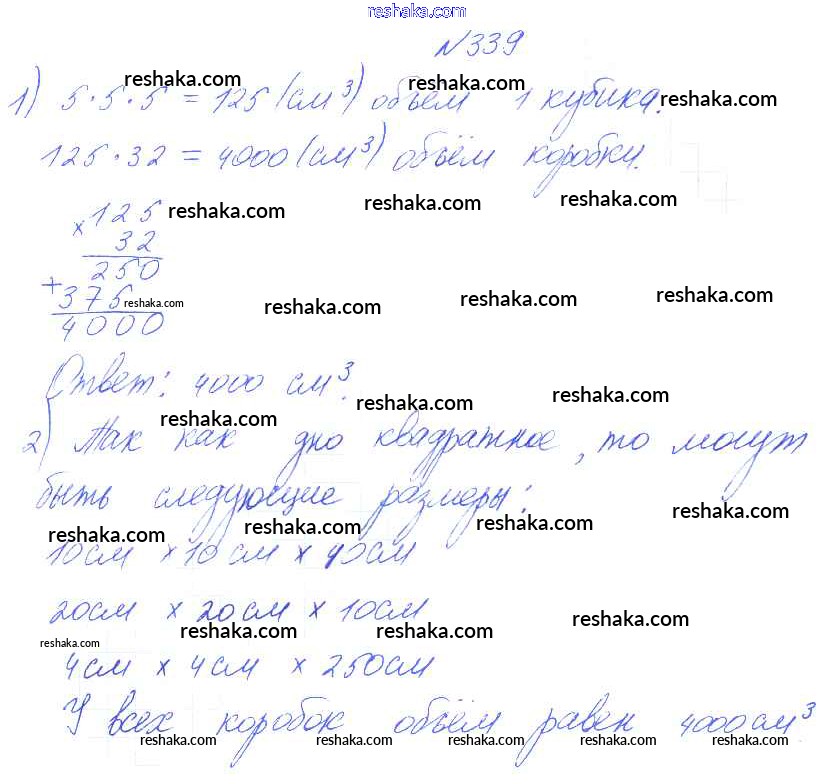 reshaka.com
№339
reshaka.com reshaka.com reshaka.com
1) 5·5·5 = 125 (см³) объем 1 кубика.
125·32 = 4000 (см³) объём коробки.
reshaka.com reshaka.com reshaka.com
×125
32
250
+375 reshaka.com
4000
reshaka.com reshaka.com reshaka.com
Ответ: 4000 см³.
reshaka.com reshaka.com reshaka.com
2) Так как дно квадратное, то могут
быть следующие размеры:
reshaka.com reshaka.com reshaka.com reshaka.com
10см × 10см × 40см
20см × 20см × 10см
reshaka.com reshaka.com reshaka.com
reshaka.com
4см × 4см × 250см
У всех коробок объём равен 4000см³
reshaka.com reshaka.com reshaka.com reshaka.com reshaka.com reshaka.com